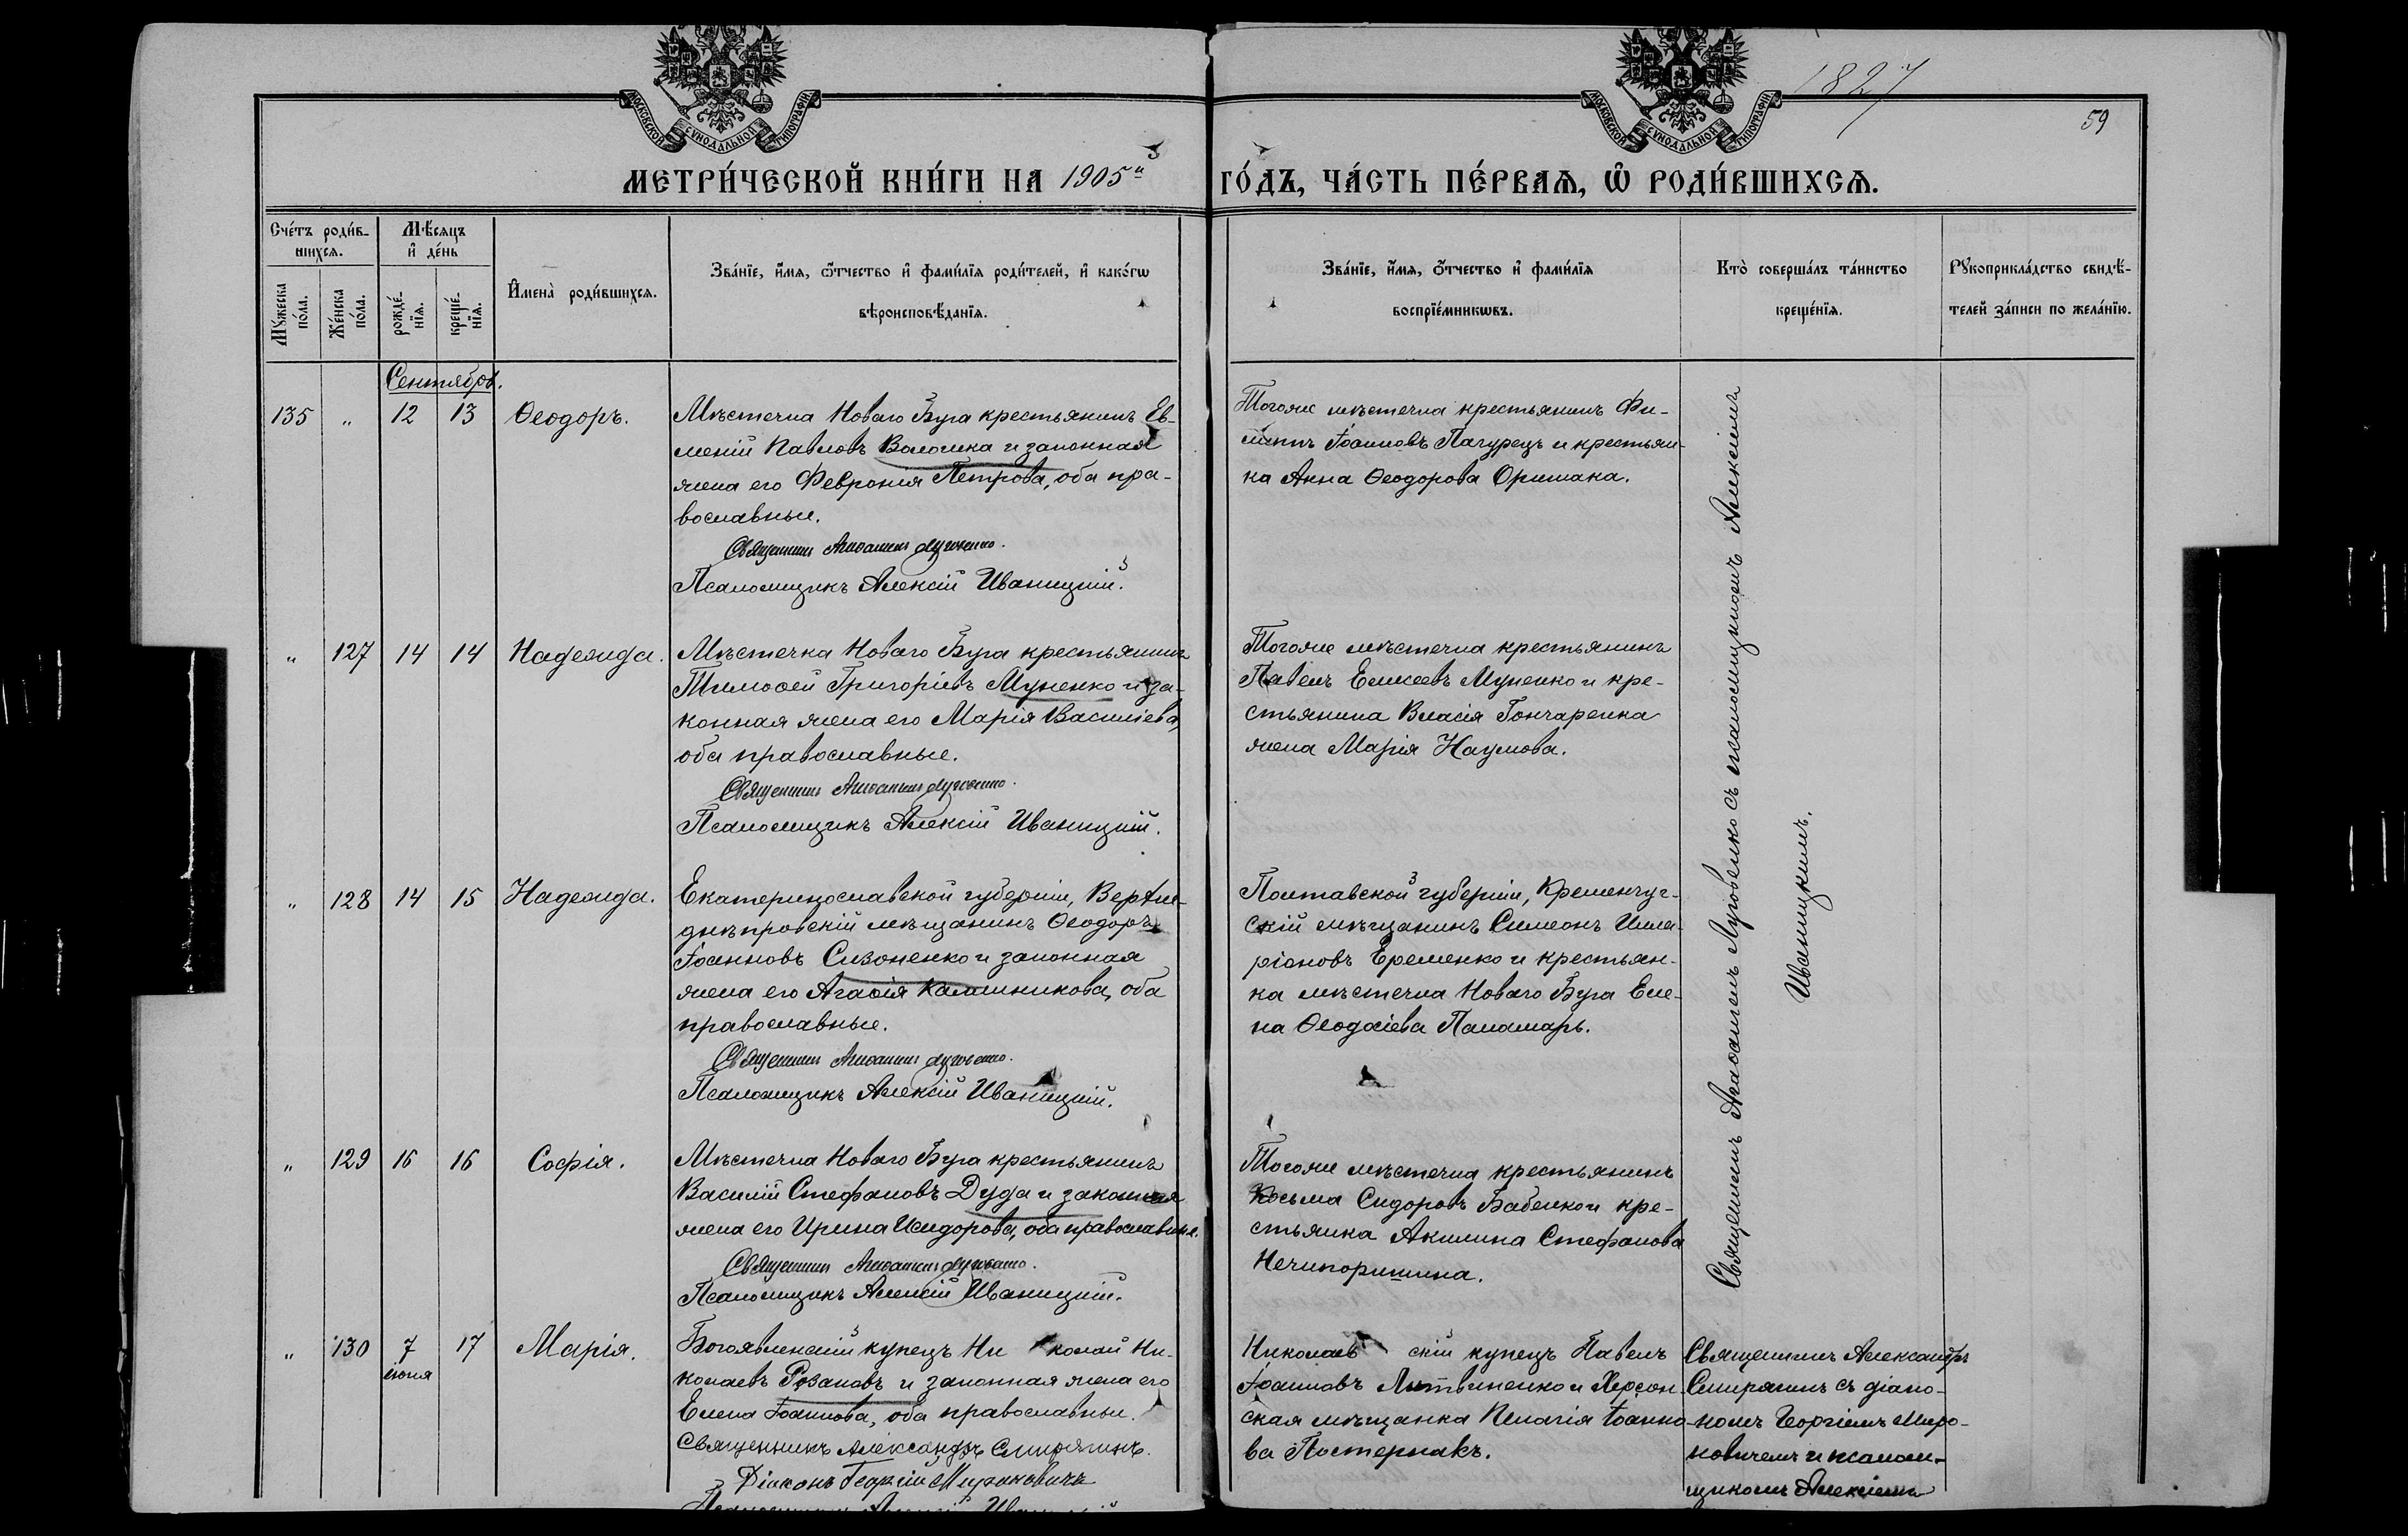 МОСКОВСКОЙ СѴНОДАЛЬНОЙ ТИПОГРАФІИ
МОСКОВСКОЙ СѴНОДАЛЬНОЙ ТИПОГРАФІИ
1827
59
МЕТРИ́ЧЕСКОЙ КНИ́ГИ НА 1905й ГО́ДЪ, ЧА́СТЬ ПЕ́РВАѦ, Ѽ РОДИ́ВШИХСѦ.
Сче́тъ роди́в-
шихсѧ.
Мꙋ́жеска по́ла.
Же́нска по́ла.
Мѣ́сяцъ
и҆ де́нь
рожде́-
нїѧ.
креще́-
нїѧ.
И҆мена̀ роди́вшихсѧ.
Зва́нїе, и҆́мѧ, ѻ҆́тчество и҆ фами́лїѧ роди́телей, и҆ како́гѡ
вѣроисповѣ́данїѧ.
Зва́нїе, и҆́мѧ, ѻ҆́тчество и҆ фами́лїѧ
воспрїе́мникѡвъ.
Кто̀ соверша́лъ та́инство
креще́нїѧ.
Рꙋкоприкла́дство свидѣ́-
телей за́писи по жела́нїю.
Сентябрь.
135 " 12 13 Ѳеодоръ.
Мѣстечка Новаго Буга крестьянинъ Ев-
меній Павловъ Волошка и законная
жена его Февронія Петрова, оба пра-
вославные.
Священникъ Агаѳангелъ Луговенко.
Псаломщикъ Алексій Иваницкій.
Тогоже мѣстечка крестьянинъ Фи-
липпъ Іоанновъ Пагурецъ и крестьян-
ка Анна Ѳеодорова Оришака.
" 127 14 14 Надежда.
Мѣстечка Новаго Буга крестьянинъ
Тимоѳей Григоріевъ Муненко и за-
конная жена его Марія Василіева,
оба православные.
Священникъ Агаѳангелъ Луговенко.
Псаломщикъ Алексій Иваницкій.
Тогоже мѣстечка крестьянинъ
Павелъ Елисеевъ Муненко и кре-
стьянина Власія Гончаренка
жена Марія Наумова.
" 128 14 15 Надежда.
Екатеринославской губерніи, Верхне-
днѣпровскій мѣщанинъ Ѳеодоръ
Іоанновъ Сизоненко и законная
жена его Агаѳія Калинникова, оба
православные.
Священникъ Агаѳангелъ Луговенко.
Псаломщикъ Алексій Иваницкій.
Полтавской губерніи, Кременчуг-
скій мѣщанинъ Симеонъ Илла-
ріоновъ Еременко и крестьян-
ка мѣстечка Новаго Буга Еле-
на Ѳеодосіева Паламарь.
" 129 16 16 Софія.
Мѣстечка Новаго Буга крестьянинъ
Василій Стефановъ Дуда и законная
жена его Ирина Исидорова, оба православные.
Священникъ Агаѳангелъ Луговенко.
Псаломщикъ Алексій Иваницкій.
Тогоже мѣстечка крестьянинъ
Косьма Сидоровъ Бабенко и кре-
стьянка Акилина Стефанова
Нечипоришина.
Священникъ Агаѳангелъ Луговенко съ псаломщикомъ Алексіемъ
Иваницкимъ.
" 130 7 17 Марія.
іюня
Богоявленскій купецъ Ни колай Ни-
колаевъ Розановъ и законная жена его
Елена Іоаннова, оба православные.
Священникъ Александръ Смирягинъ.
Діаконъ Георгій Мироновичъ
Псаломщикъ Алексій Иваницкій
Николаев скій купецъ Павелъ
Іоанновъ Литвиненко и Херсон-
ская мѣщанка Пелагія Іоанно-
ва Постернакъ.
Священникъ Александръ
Смирягинъ съ діако-
номъ Георгіемъ Миро-
новичемъ и псалом-
щикомъ Алексіемъ